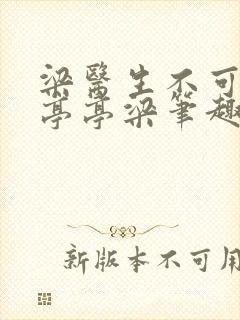 梁醫生不可
亭亭梁筆趣
新版本不可用